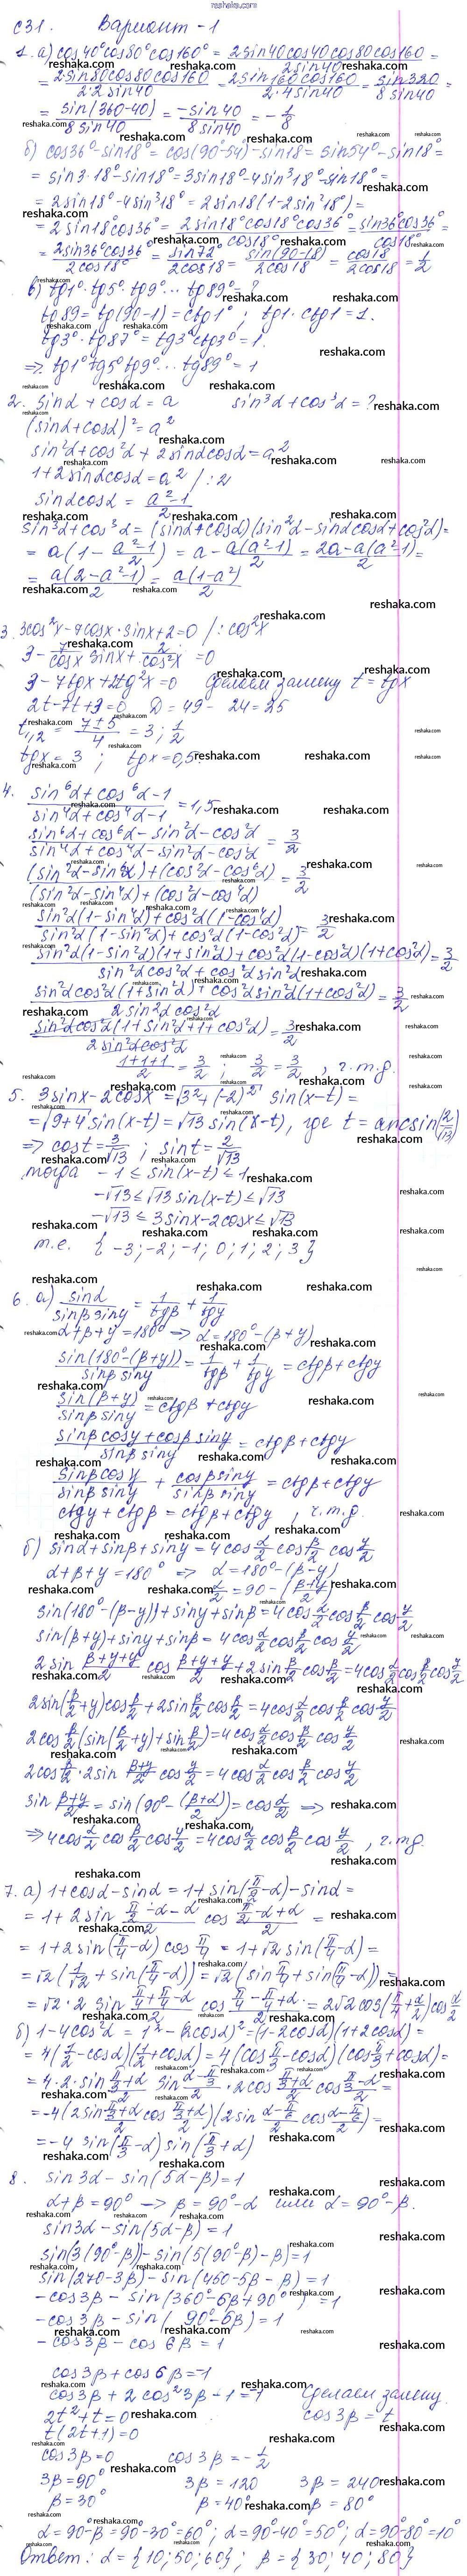 reshaka.com
С31. Вариант - 1
1. а) cos40°cos80°cos160° = 2sin40cos40cos80cos160 / 2sin40 =
= 2sin80cos80cos160 / 2·2sin40 = 2sin160cos160 / 2·4sin40 = sin320 / 8sin40 =
= sin(360-40) / 8sin40 = -sin40 / 8sin40 = -1/8
б) cos36°-sin18° = cos(90°-54)-sin18 = sin54°-sin18° =
= sin3·18°-sin18° = 3sin18°-4sin³18°-sin18° =
= 2sin18°-4sin³18° = 2sin18(1-2sin²18°) =
= 2sin18°cos36° = 2sin18°cos18°cos36° / cos18° = sin36°cos36° / cos18° =
= 2sin36°cos36° / 2cos18° = sin72° / 2cos18 = sin(90-18) / 2cos18 = cos18 / 2cos18 = 1/2
в) tg1°·tg5°·tg9°... tg89° = ?
tg89 = tg(90-1) = ctg1° ; tg1·ctg1 = 1.
tg3°·tg87° = tg3°ctg3° = 1.
=> tg1°tg5°tg9°... tg89° = 1
2. sinα + cosα = a sin³α + cos³α = ?
(sinα+cosα)² = a²
sin²α+cos²α + 2sinαcosα = a²
1+2sinαcosα = a² /:2
sinαcosα = a²-1 / 2
sin³α+cos³α = (sinα+cosα)(sin²α-sinαcosα+cos²α) =
= a(1 - a²-1 / 2) = a - a(a²-1) / 2 = 2a-a(a²-1) / 2 =
= a(2-a²-1) / 2 = a(1-a²) / 2
3. 3cos²x-7cosx·sinx+2=0 /:cos²x
3 - 7/cosx sinx + 2/cos²x = 0
3-7tgx+2tg²x=0 Сделаем замену t = tgx
2t-7t+3=0 D = 49-24=25
t1,2 = 7±5 / 4 = 3; 1/2
tgx = 3 ; tgx = 0,5.
4. sin⁶α + cos⁶α-1 / sin⁴α + cos⁴α-1 = 1,5
sin⁶α + cos⁶α - sin²α - cos²α / sin⁴α + cos⁴α - sin²α - cos²α = 3/2
(sin²α-sin⁶α)+(cos²α-cos⁶α) / (sin²α-sin⁴α)+(cos²α-cos⁴α) = 3/2
sin²α(1-sin⁴α)+cos²α(1-cos⁴α) / sin²α(1-sin²α)+cos²α(1-cos²α) = 3/2
sin²α(1-sin²α)(1+sin²α)+cos²α(1-cos²α)(1+cos²α) / sin²αcos²α + cos²αsin²α = 3/2
sin²αcos²α(1+sin²α)+cos²αsin²α(1+cos²α) / 2sin²αcos²α = 3/2
sin²αcos²α(1+sin²α+1+cos²α) / 2sin²αcos²α = 3/2
1+1+1 / 2 = 3/2 ; 3/2 = 3/2 , ч.т.д.
5. 3sinx-2cosx = √3²+(-2)² sin(x-t) =
= √9+4 sin(x-t) = √13 sin(x-t), где t = arcsin(2/√13)
=> cost = 3/√13 ; sint = 2/√13
тогда -1 ≤ sin(x-t) ≤ 1
-√13 ≤ √13 sin(x-t) ≤ √13
-√13 ≤ 3sinx-2cosx ≤ √13
т.е. {-3;-2;-1; 0; 1; 2; 3}
6. а) sinα / sinβ sinγ = 1/tgβ + 1/tgγ
α+β+γ = 180° => α = 180°-(β+γ)
sin(180°-(β+γ)) / sinβ sinγ = 1/tgβ + 1/tgγ = ctgβ + ctgγ
sin(β+γ) / sinβ sinγ = ctgβ + ctgγ
sinβ cosγ + cosβ sinγ / sinβ sinγ = ctgβ + ctgγ
sinβcosγ / sinβ sinγ + cosβsinγ / sinβ sinγ = ctgβ + ctgγ
ctgγ + ctgβ = ctgβ + ctgγ , ч.т.д.
б) sinα + sinβ + sinγ = 4cos α/2 cos β/2 cos γ/2
α+β+γ = 180° => α = 180°-(β-γ)
α/2 = 90 - (β+γ / 2)
sin(180°-(β-γ))+sinγ+sinβ = 4cos α/2 cos β/2 cos γ/2
sin(β+γ)+sinγ+sinβ = 4cos α/2 cos β/2 cos γ/2
2sin β+γ+γ / 2 cos β+γ+γ / 2 + 2sin β/2 cos β/2 = 4cos α/2 cos β/2 cos γ/2
2sin(β/2+γ)cos β/2 + 2sin β/2 cos β/2 = 4cos α/2 cos β/2 cos γ/2
2cos β/2 (sin(β/2+γ)+sin β/2) = 4cos α/2 cos β/2 cos γ/2
2cos β/2 · 2sin β+γ / 2 cos γ/2 = 4cos α/2 cos β/2 cos γ/2
sin β+γ / 2 = sin(90°-(β+α / 2)) = cos α/2 =>
=> 4cos α/2 cos β/2 cos γ/2 = 4cos α/2 cos β/2 cos γ/2 , ч.т.д.
7. а) 1+cosα-sinα = 1+sin(π/2-α)-sinα =
= 1+2sin π/2-α-α / 2 cos π/2-α+α / 2 =
= 1+2sin(π/4-α) cos π/4 = 1+√2 sin(π/4-α) =
= √2(1/√2 + sin(π/4-α)) = √2(sin π/4 + sin(π/4-α)) =
= √2·2 sin π/4+π/4-α / 2 cos π/4-π/4+α / 2 = 2√2 cos(π/4+α/2)cos α/2
б) 1-4cos²α = 1²-(2cosα)² = (1-2cosα)(1+2cosα) =
= 4(1/2-cosα)(1/2+cosα) = 4(cos π/3-cosα)(cos π/3+cosα) =
= 4·2·sin π/3+α / 2 sin α-π/3 / 2 · 2cos π/3+α / 2 cos π/3-α / 2 =
= -4(2sin π/3+α / 2 cos π/3+α / 2)(2sin α-π/6 / 2 cos α-π/6 / 2) =
= -4 sin(π/3-α) sin(π/3+α)
8. sin3α - sin(5α-β) = 1
α+β = 90° -> β = 90°-α или α = 90°-β.
sin3α - sin(5α-β) = 1
sin(3(90°-β))-sin(5(90°-β)-β) = 1
sin(270-3β)-sin(450-5β-β) = 1
-cos3β - sin(360°-6β+90°) = 1
-cos3β - sin( 90°-6β) = 1
-cos3β - cos6β = 1
cos3β + cos6β = -1
cos3β + 2cos²3β - 1 = -1 Сделаем замену
2t²+t=0 cos3β = t
t(2t+1)=0
cos3β = 0 cos3β = -1/2
3β = 90° 3β = 120 3β = 240
β = 30° β = 40° β = 80°
α = 90-β = 90-30°=60°; α=90°-40°=50°; α=90°-80°=10°
Ответ: α = {10; 50; 60} β = {30; 40; 80}